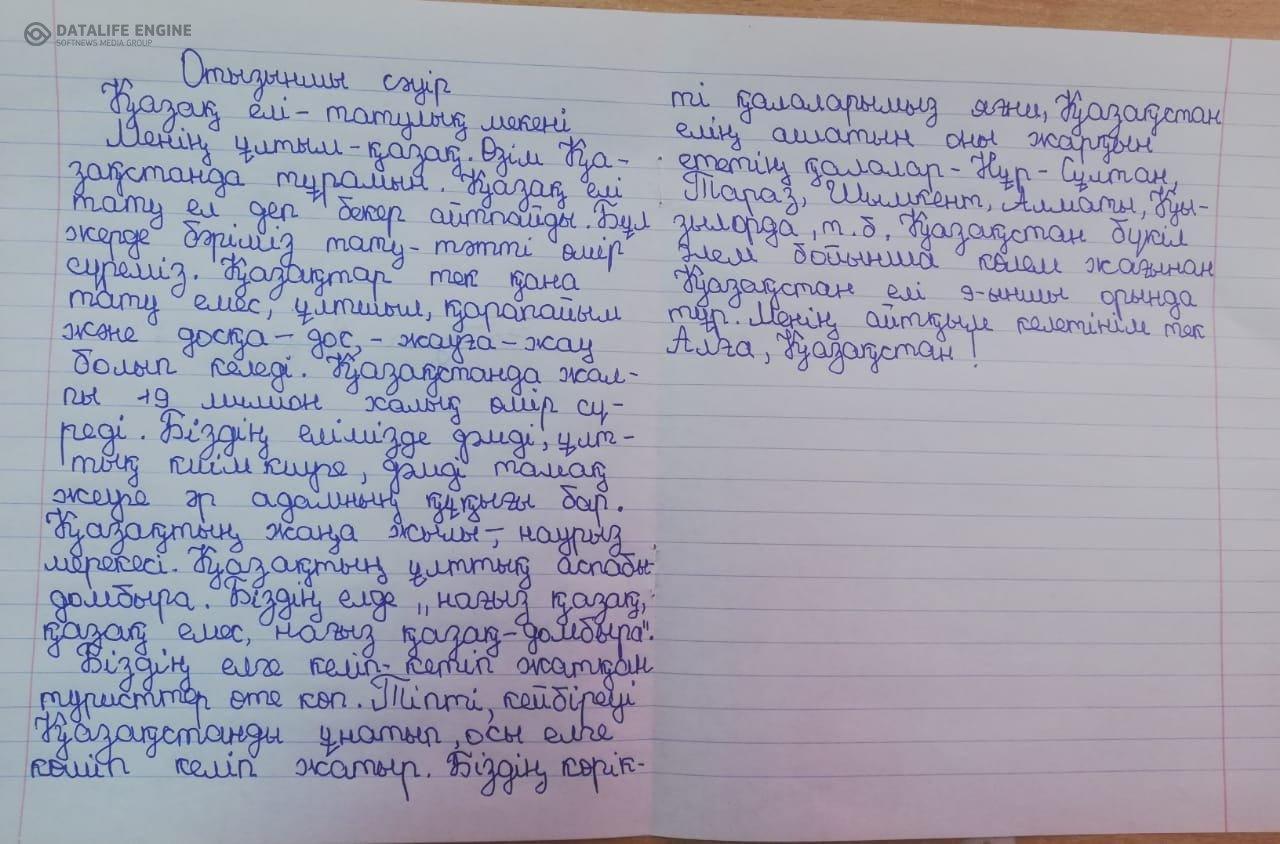 DATALIFE ENGINE
SOFTNEWS MEDIA GROUP
Отызыншы сәуір
Қазақ елі – татулық мекені
Менің ұлтым – қазақ. Өзім Қа-
зақстанда тұрамын. Қазақ елі
тату ел деп бекер айтпайды. Бұл
жерде бәріміз тату-тәтті өмір
сүреміз. Қазақтар тек қана
тату емес, ұлтшыл, қарапайым
және досқа – дос, - жауға – жау
болып келеді. Қазақстанда жал-
пы 19 милион халық өмір сү-
реді. Біздің елімізде дәмді, ұлт-
тық киім киуге, дәмді тамақ
жеуге әр адамның құқығы бар.
Қазақтың жаңа жылы –, наурыз
мерекесі. Қазақтың ұлттық аспабы-
домбыра. Біздің елде „нағыз қазақ,
қазақ емес, нағыз қазақ-домбыра".
Біздің елге келіп-кетіп жатқан
туристтер өте көп. Тіпті, кейбіреуі
Қазақстанды ұнатып, осы елге
көшіп келіп жатыр. Біздің көрік-
ті қалаларымыз яғни, Қазақстан
елің ашатын оны жарқын
ететің қалалар – Нұр-Сұлтан,
Тараз, Шымкент, Алматы, Қы-
зылорда, т.б. Қазақстан бүкіл
әлем бойынша көлем жағынан
Қазақстан елі 9-ыншы орында
тұр. Менің айтқым келетінім тек
Алға, Қазақстан!